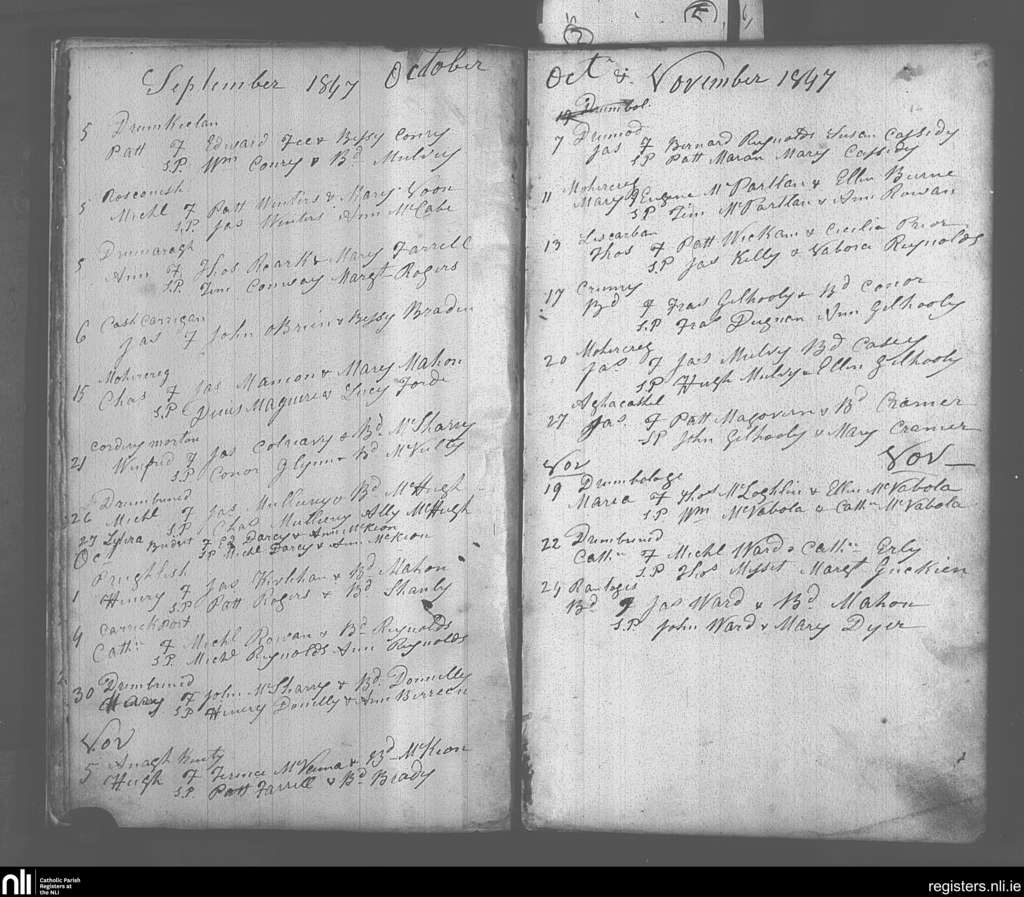 September 1847 October
5 Drumkielan
Patt of Edward Fee & Bessy Conry
S.P. Wm Conry & Bd Mulvey
5 Rosconish
Michl of Patt Winters & Mary Noon
S.P. Jas Winters Ann McCabe
5 Drumaragh
Ann of Thos Roark & Mary Farrell
S.P. Tim Conway Margt Rogers
6 Cashcarrigan
Jas of John OBrien & Bessy Braden
15 Mohercreg
Chas of Jas Mancon & Mary Mahon
S.P. Maguire & Lucy Forde
21 Cordrymorlan
Winfred of Jas Colreavy & Bd McSharry
S.P. Conor Glynn & Bd McNulty
26 Drumbuned
Michl of Jas Mulleny & Bd McHugh
S.P. Chas Mulleny Ally McHugh
27 Lydra Bridgt of Ed Darcy & Ann McKeon
S.P. Michl Darcy & Ann McKeon
Oct
Roughlish
1 Henry of Jas Kivlehan & Bd Mahon
S.P. Patt Rogers & Bd Shanly
4 Carrickport
Cathn of Michl Rowan & Bd Reynolds
S.P. Michl Reynolds Ann Reynolds
30 Drumbuned
of John McSharry & Bd Donnelly
S.P. Henery Donelly & Ann Berreen
Nov
5 Anagh
Hugh of Terence McKenna & Bd McKeon
S.P. Patt Farrell & Bd Brady
Octr & November 1847
Drumbol
7 Drumod
Jas of Bernard Reynolds Susan Cassidy
S.P. Patt Maran Mary Cassidy
11 Mohercreg
Mary of Eugene McPartlan & Ellin Burne
S.P. Tim McPartlan & Ann Rowan
13 Liscarban
Thos of Patt Wickam & Cecilia Prior
S.P. Jas Kelly & Nabora Reynolds
17 Crumy
Bd of Fras Gilhooly & Bd Conor
S.P. Fras Dugnan Ann Gilhooly
20 Mohercreg
Jas of Jas Mulvy Bd Casey
S.P. Hugh Mulvy & Ellin Gilhooly
Aghacashel
27 Jas of Patt Magovern & Bd Cramer
S.P. John Gilhooly & Mary Cramer
Nov Nov
19 Drumbologe
Maria of Thos McLoghlin & Ellin McNabola
S.P. Wm McNabola & Cathn McNabola
22 Drumbuned
Cathn of Michl Ward & Cathn Erly
S.P. Thos Margt Guckien
29
Bd of Jas Ward & Bd Mahon
S.P. John Ward & Mary Dyer
nli
Catholic Parish
Registers at
the NLI
registers.nli.ie